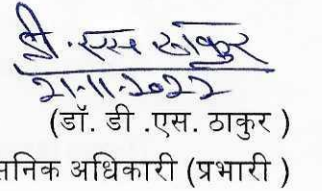 डी.एस ठाकुर
21.11.2022
(डॉ. डी .एस. ठाकुर )
सनिक अधिकारी (प्रभारी )